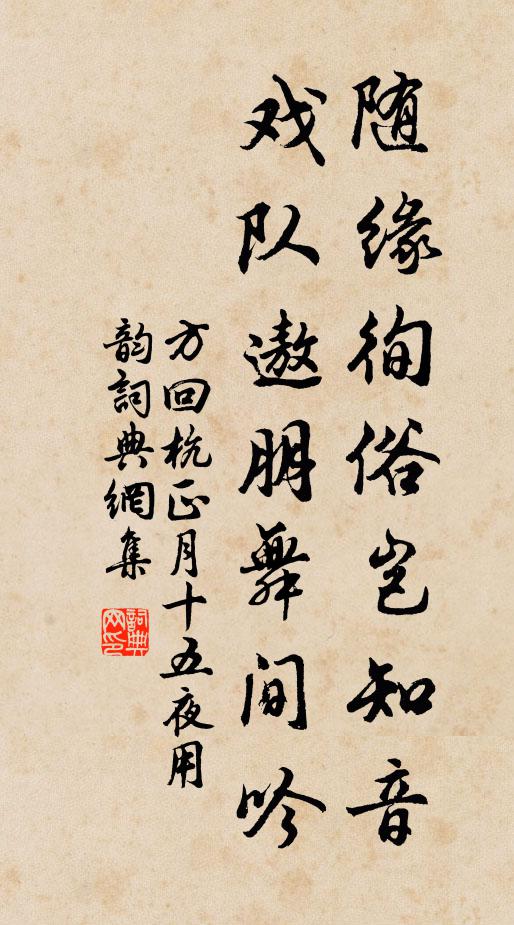 随缘徇俗岂知音
戏队遨朋舞间吟
方回杭正月十五夜用
韵詞典網集
詞典
网印